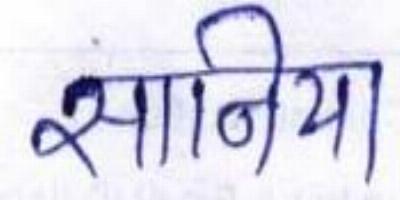 सानिया